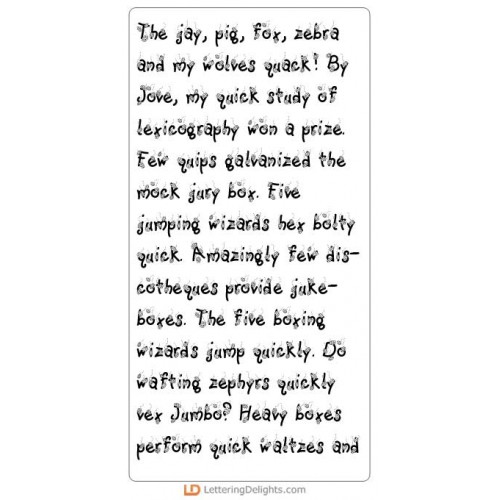 The jay, pig, fox, zebra
and my wolves quack! By
Jove, my quick study of
lexicography won a prize.
Few quips galvanized the
mock jury box. Five
jumping wizards hex bolty
quick. Amazingly few dis-
cotheques provide juke-
boxes. The five boxing
wizards jump quickly. Do
wafting zephyrs quickly
vex Jumbo? Heavy boxes
perform quick waltzes and
LD LetteringDelights.com